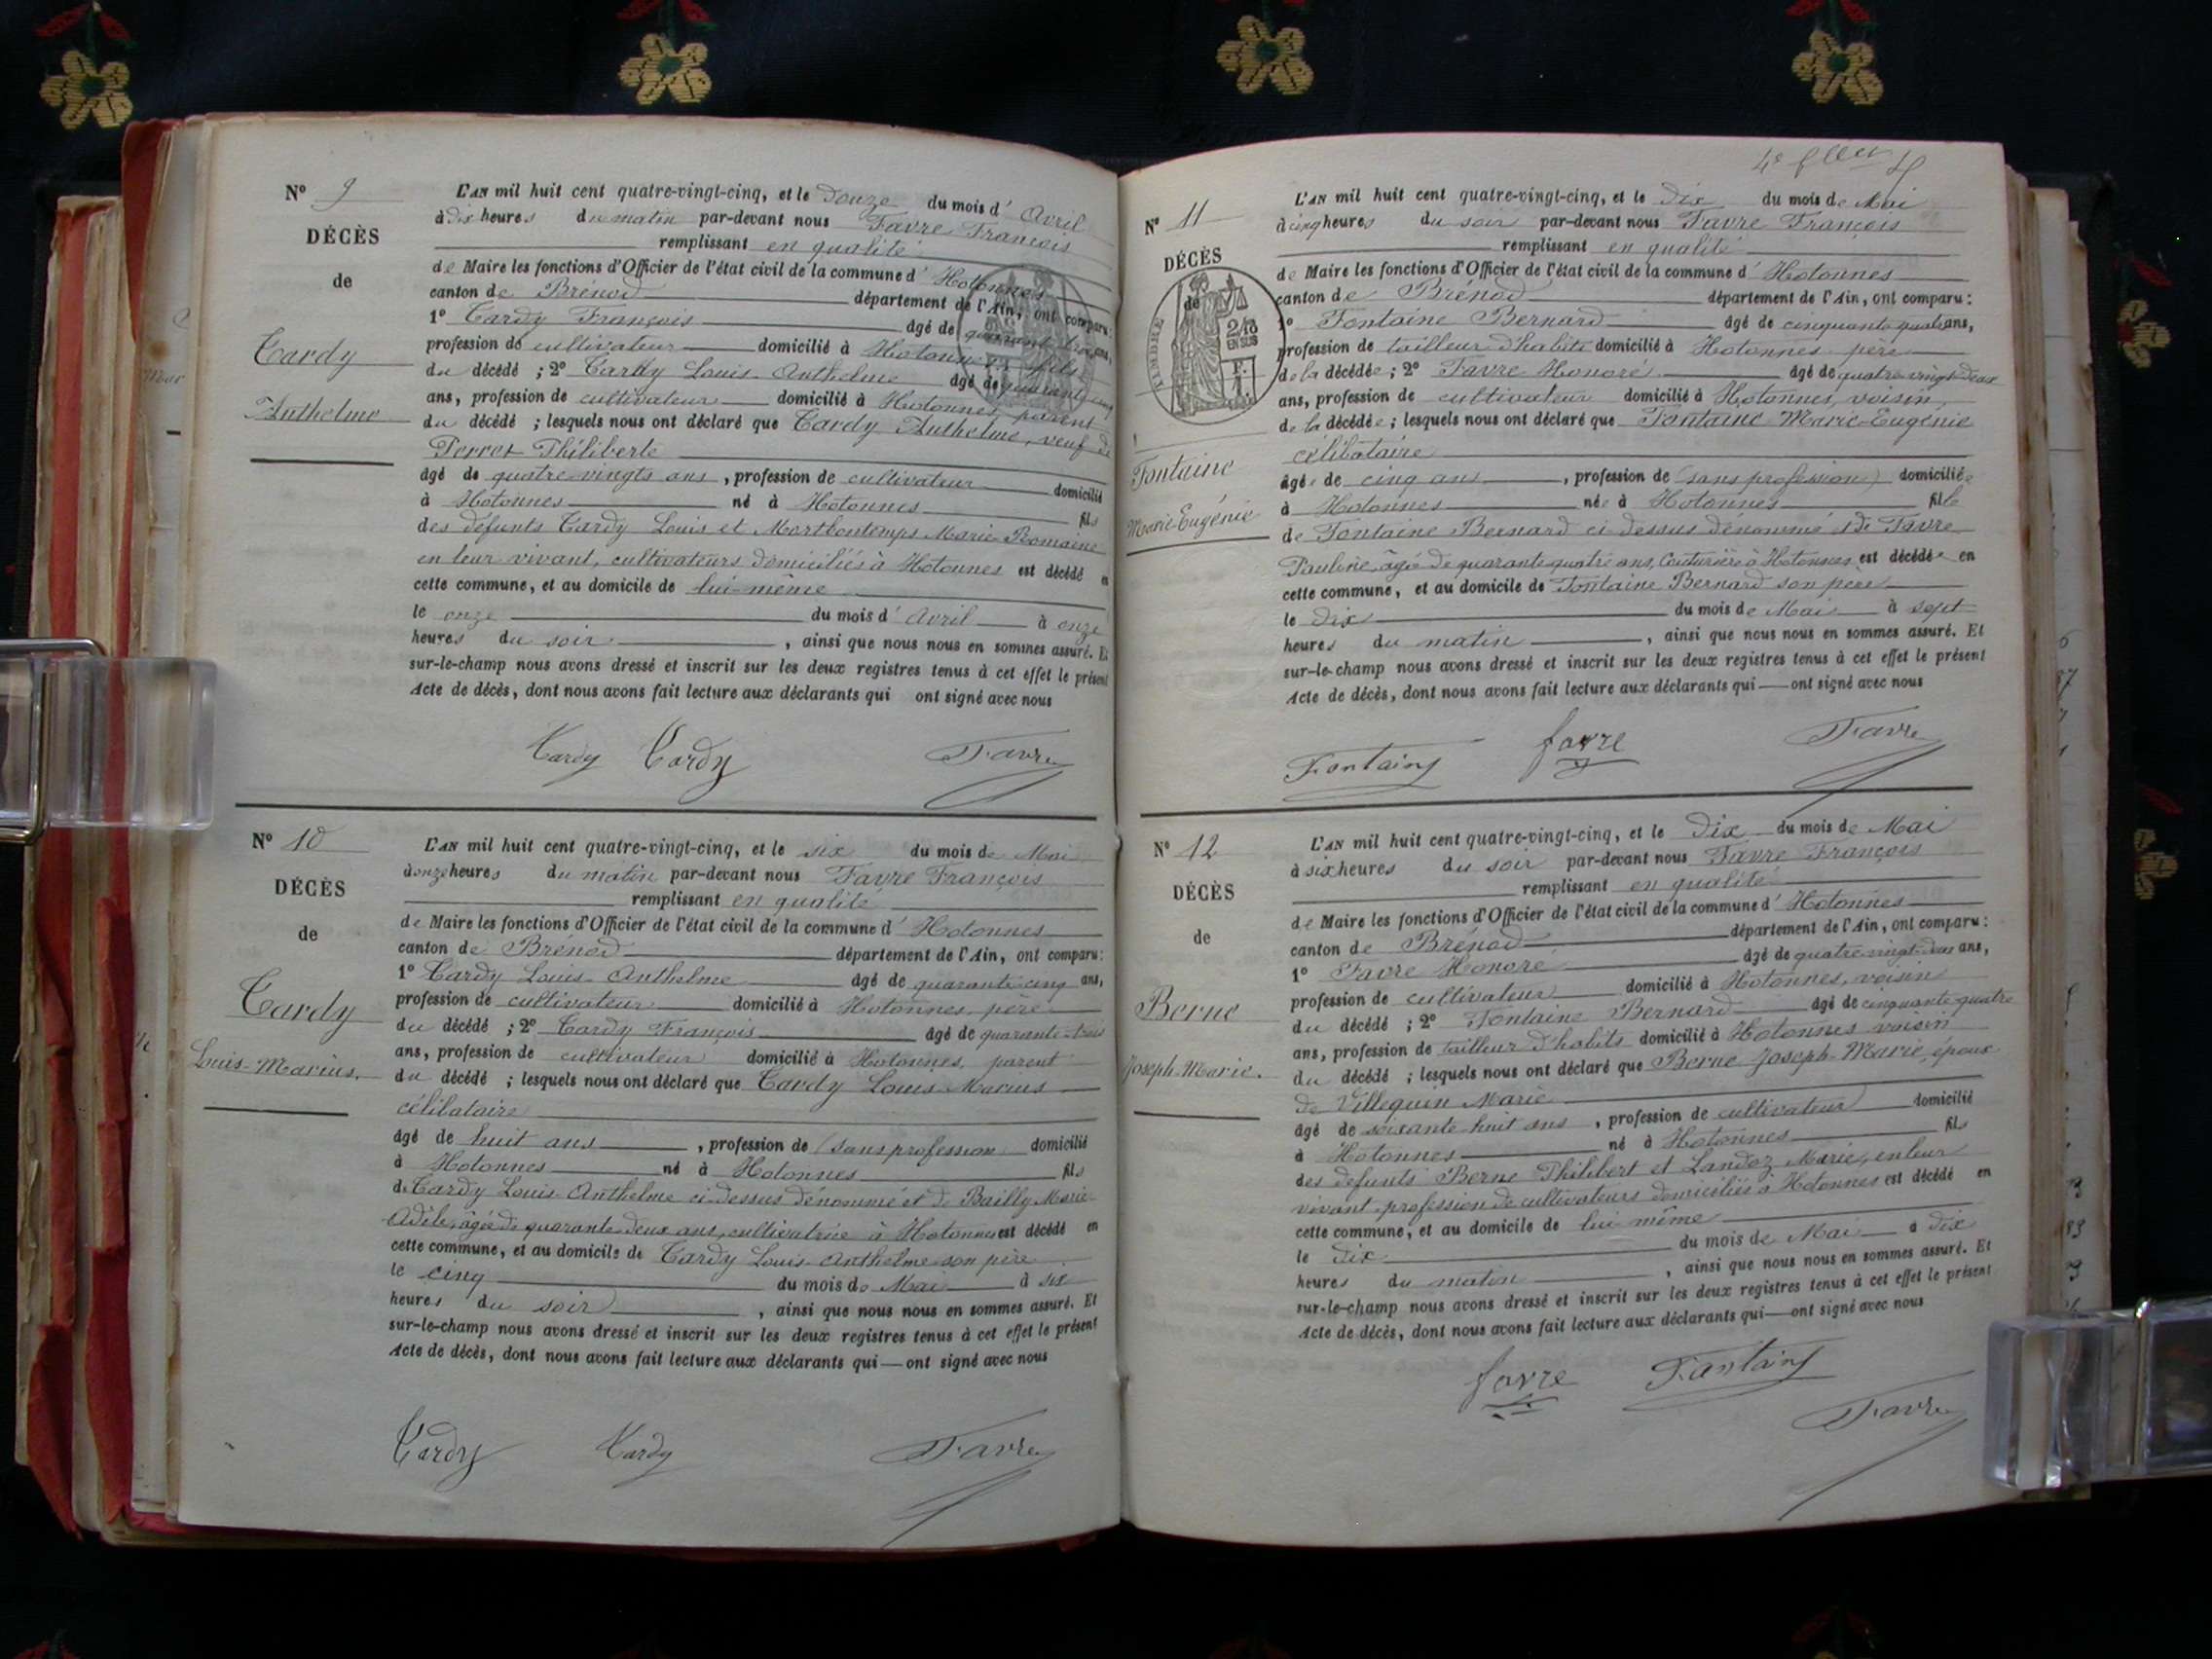 Nº 9
DÉCÈS
de
Cardy
Anthelme
L'AN mil huit cent quatre-vingt-cinq, et le douze du mois d'Avril
à dix heures du matin par-devant nous Favre François
remplissant en qualité
de Maire les fonctions d'Officier de l'état civil de la commune d'Hotonnes
canton de Brénod département de l'Ain, ont comparu:
1º Cardy François âgé de quarante trois ans,
profession de cultivateur domicilié à Hotonnes fils
du décédé ; 2º Cardy Louis Anthelme âgé de quarante cinq
ans, profession de cultivateur domicilié à Hotonnes, parent
du décédé ; lesquels nous ont déclaré que Cardy Anthelme, veuf de
Perret Philiberte
âgé de quatre-vingts ans, profession de cultivateur domicilié
à Hotonnes né à Hotonnes fils
des défunts Cardy Louis et Marthontemps Marie Romaine
en leur vivant, cultivateurs domiciliés à Hotonnes est décédé en
cette commune, et au domicile de lui-même
le onze du mois d'Avril à onze
heures du soir, ainsi que nous nous en sommes assuré. Et
sur-le-champ nous avons dressé et inscrit sur les deux registres tenus à cet effet le présent
Acte de décès, dont nous avons fait lecture aux déclarants qui ont signé avec nous
Cardy Cardy Favre
Nº 10
DÉCÈS
de
Cardy
Louis-Marius.
L'AN mil huit cent quatre-vingt-cinq, et le six du mois de Mai
à onze heures du matin par-devant nous Favre François
remplissant en qualité
de Maire les fonctions d'Officier de l'état civil de la commune d'Hotonnes
canton de Brénod département de l'Ain, ont comparu:
1º Cardy Louis Anthelme âgé de quarante-cinq ans,
profession de cultivateur domicilié à Hotonnes, père
du décédé ; 2º Cardy François âgé de quarante-trois
ans, profession de cultivateur domicilié à Hotonnes, parent
du décédé ; lesquels nous ont déclaré que Cardy Louis Marius
célibataire
âgé de huit ans, profession de (sans profession) domicilié
à Hotonnes né à Hotonnes fils
de Cardy Louis-Anthelme ci-dessus dénommé et de Bailly Marie-
Adèle, âgée de quarante deux ans, cultivatrice à Hotonnes est décédé en
cette commune, et au domicile de Cardy Louis-Anthelme son père
le cinq du mois de Mai à six
heures du soir, ainsi que nous nous en sommes assuré. Et
sur-le-champ nous avons dressé et inscrit sur les deux registres tenus à cet effet le présent
Acte de décès, dont nous avons fait lecture aux déclarants qui — ont signé avec nous
Cardy Cardy Favre
Nº 11
DÉCÈS
de
TIMBRE
2/10
EN SUS
Fontaine
Marie Eugénie
L'AN mil huit cent quatre-vingt-cinq, et le dix du mois de Mai
à cinq heures du soir par-devant nous Favre François
remplissant en qualité
de Maire les fonctions d'Officier de l'état civil de la commune d'Hotonnes
canton de Brénod département de l'Ain, ont comparu:
1º Fontaine Bernard âgé de cinquante quatre ans,
profession de tailleur d'habits domicilié à Hotonnes père
de la décédée ; 2º Favre Honoré âgé de quatre-vingt-deux
ans, profession de cultivateur domicilié à Hotonnes, voisin,
de la décédée ; lesquels nous ont déclaré que Fontaine Marie-Eugénie
célibataire
âgée de cinq ans, profession de (sans profession) domiciliée
à Hotonnes née à Hotonnes fille
de Fontaine Bernard ci dessus dénommé et de Favre
Pauline, âgée de quarante quatre ans, Couturière à Hotonnes est décédée en
cette commune, et au domicile de Fontaine Bernard son père
le dix du mois de Mai à sept
heures du matin, ainsi que nous nous en sommes assuré. Et
sur-le-champ nous avons dressé et inscrit sur les deux registres tenus à cet effet le présent
Acte de décès, dont nous avons fait lecture aux déclarants qui — ont signé avec nous
Fontaine favre Favre
Nº 12
DÉCÈS
de
Berne
Joseph-Marie.
L'AN mil huit cent quatre-vingt-cinq, et le dix du mois de Mai
à six heures du soir par-devant nous Favre François
remplissant en qualité
de Maire les fonctions d'Officier de l'état civil de la commune d'Hotonnes
canton de Brénod département de l'Ain, ont comparu:
1º Favre Honoré âgé de quatre-vingt-deux ans,
profession de cultivateur domicilié à Hotonnes, voisin
du décédé ; 2º Fontaine Bernard âgé de cinquante quatre
ans, profession de tailleur d'habits domicilié à Hotonnes voisin
du décédé ; lesquels nous ont déclaré que Berne Joseph-Marie, époux
de Villequin Marie
âgé de soixante-huit ans, profession de cultivateur domicilié
à Hotonnes né à Hotonnes fils
des défunts Berne Philibert et Landoz Marie, en leur
vivant, profession de cultivateurs domiciliés à Hotonnes est décédé en
cette commune, et au domicile de lui-même
le dix du mois de Mai à dix
heures du matin, ainsi que nous nous en sommes assuré. Et
sur-le-champ nous avons dressé et inscrit sur les deux registres tenus à cet effet le présent
Acte de décès, dont nous avons fait lecture aux déclarants qui — ont signé avec nous
favre Fontaine
Favre